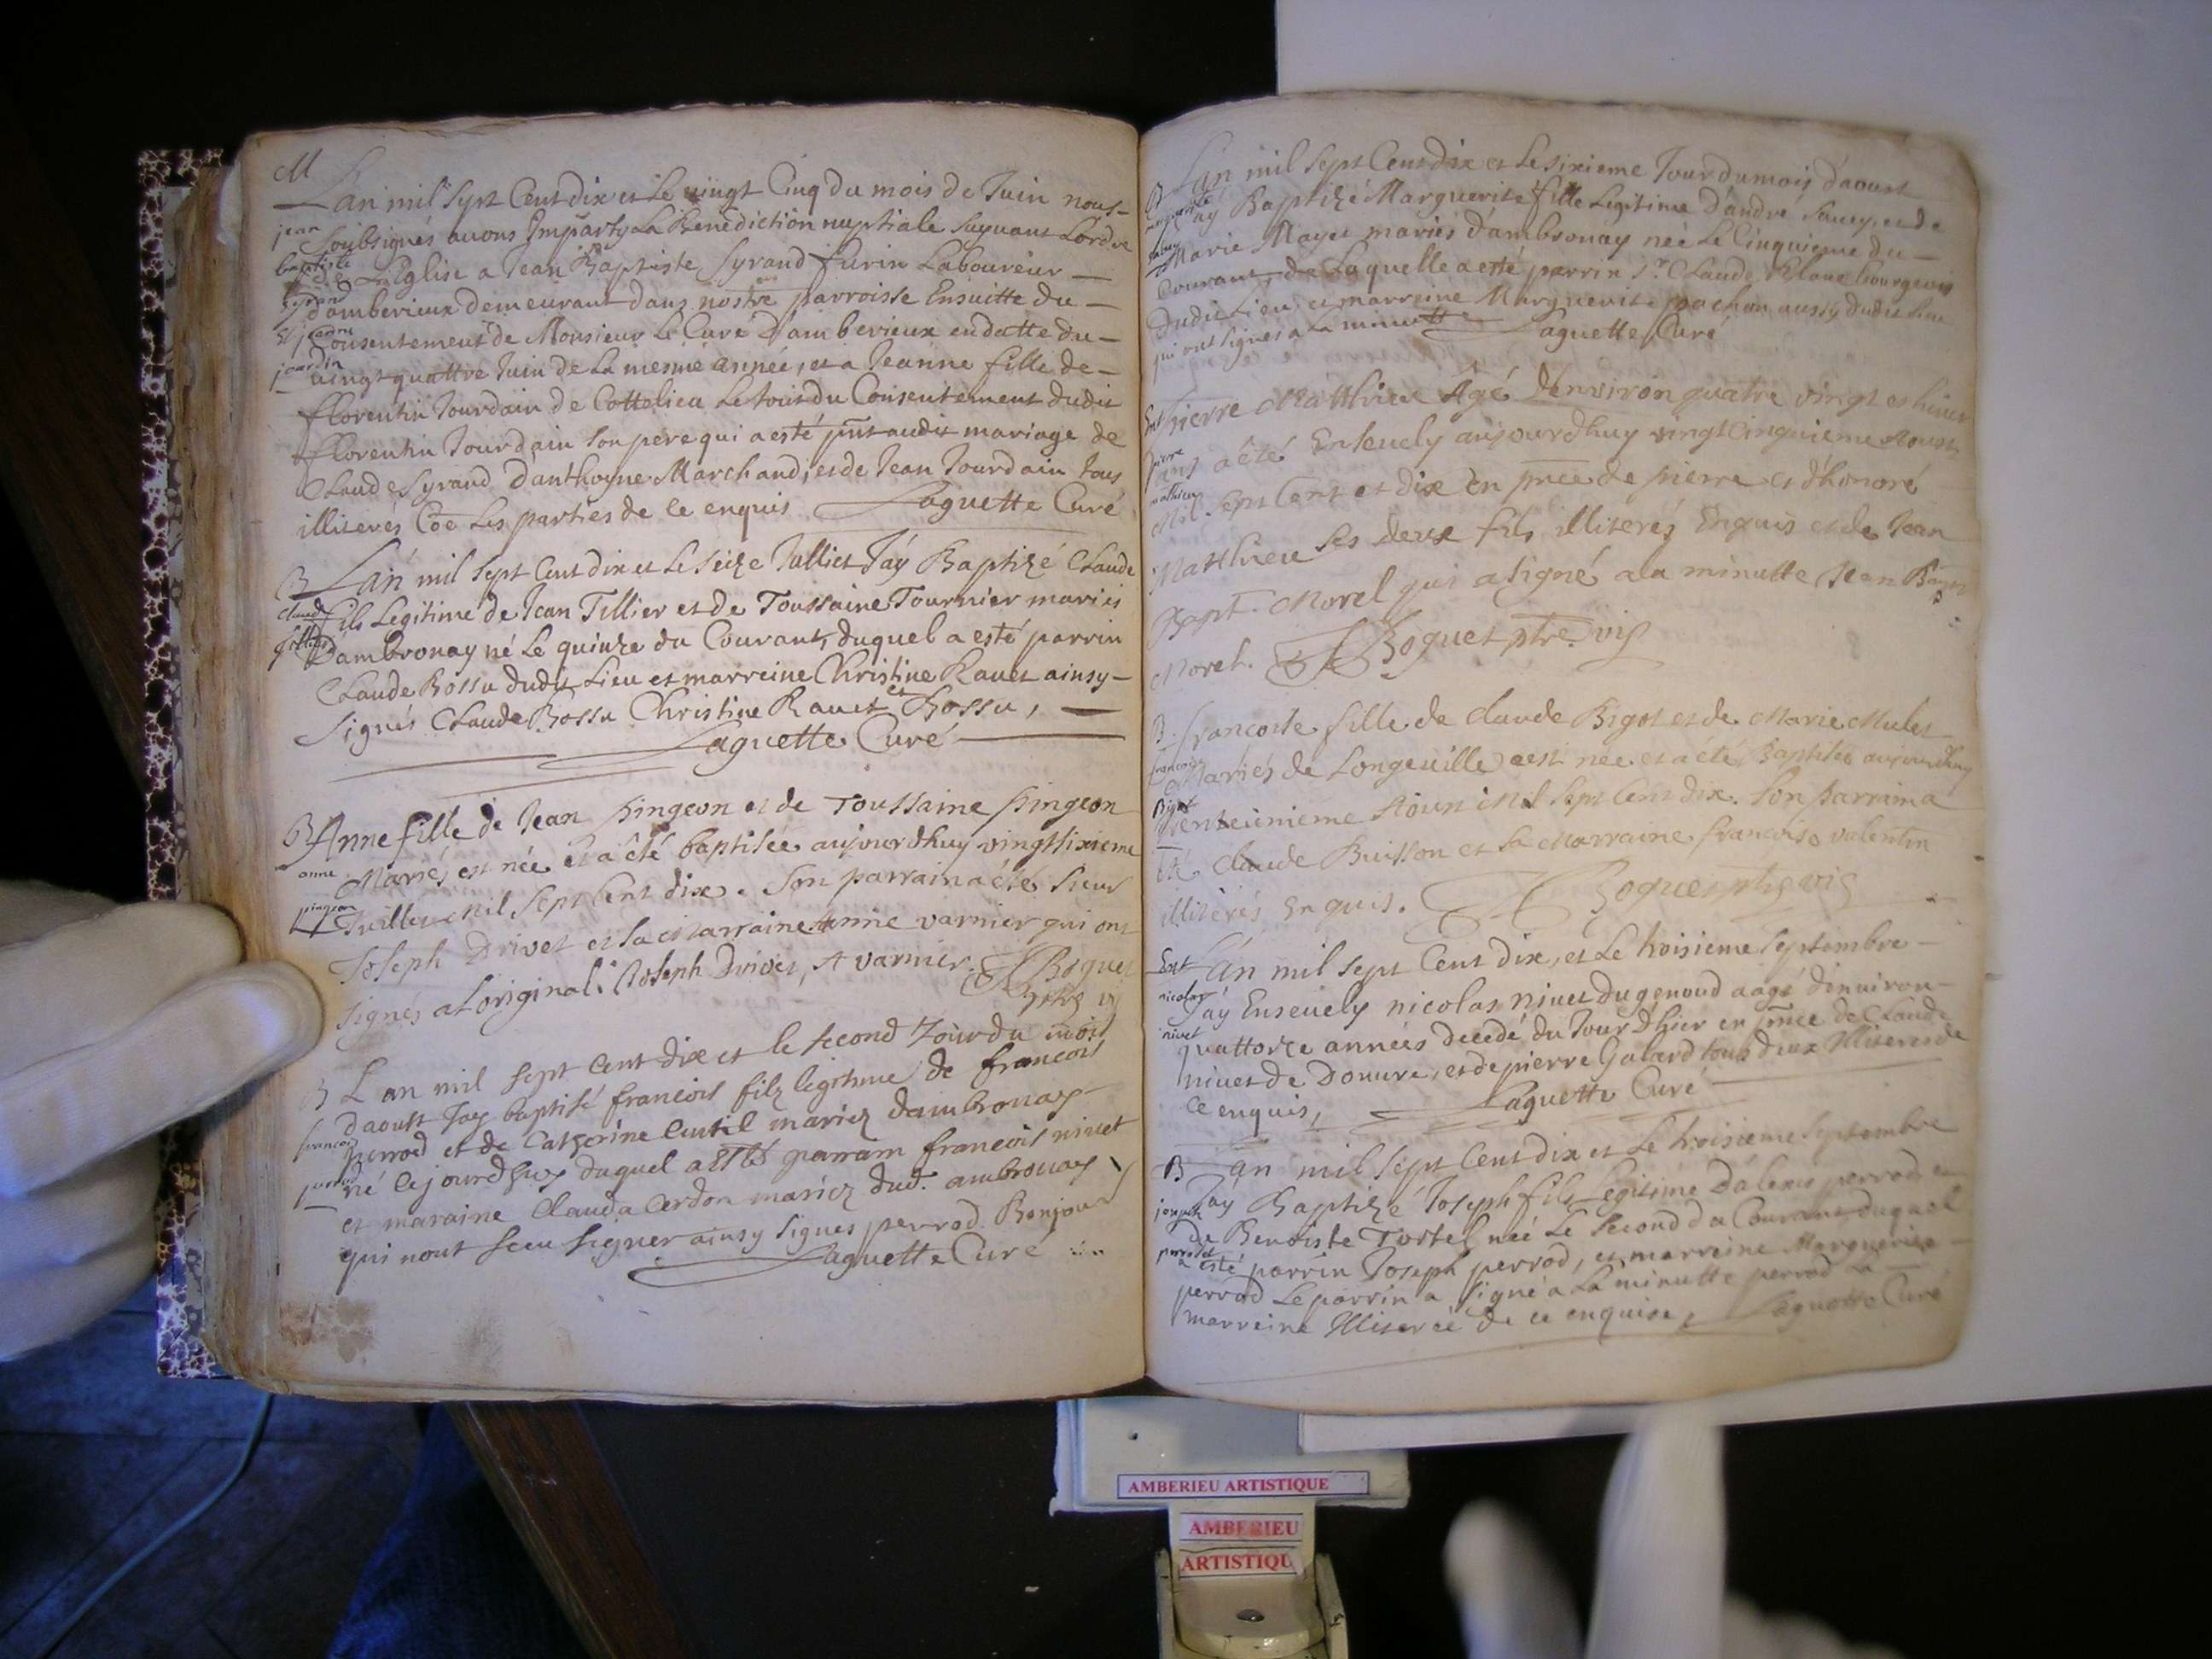 M
Lan mil sept Cent dix et Le vingt Cinq du mois de Juin nous
jean
Soubsignés avons Imparty La Benediction nuptiale suyvant Lordre
baptiste
de LEglise a Jean Baptiste Syrand Laboureur
syrand
damberieux demeurant dans nostre parroisse Ensuitte du
et jeanne
Consentement de Monsieur Le Curé D'amberieux en datte du
jourdin
vingt quattre Juin de La mesme année, et a Jeanne fille de
fflorentin Jourdain de Cottelieu Le tout du Consentement dudit
fflorentin Jourdain son pere qui a esté pnt audit mariage de
Claude Syrand Danthoyne Marchand, et de Jean Jourdain tous
illiterés Coe Les parties de ce enquis Laguette Curé
B Lan mil sept Cent dix et Le seize Julliet Jay Baptizé Claude
claude
fils Legitime de Jean Tillier et de Toussaine Tournier mariés
Dambronay né Le quinze du Courant, duquel a esté parrin
Claude Bossu dudit Lieu et marreine Christine Ravet ainsy
signés Claude Bossu Christine Ravet et Bossu,
Laguette Curé
B Anne fille de Jean pingeon et de Toussaine pingeon
anne
Mariés est née et a été baptisée aujourdhuy vingtsixieme
pingeon
Juillet Mil Sept Cent dix. Son parrain a été sieur
Joseph Drivet et sa Marraine Anne varnier qui ont
signés a Loriginal. Joseph Drivet, A varnier. Boguet
ptre vi
B Lan mil sept cent dix et le second Jour du mois
daoust Jay baptisé francois filz legitime de francois
francois
perrod et de Catherine Cutil mariez dambronay
perrod
né cejourdhuy duquel a esté parrain francois nivet
et maraine Clauda Cerdon mariez dud. ambronay
qui nont sceu signer ainsy signes perrod Bonjour
Laguette Curé
B Lan mil sept Cent dix et Le sixieme Jour du mois daoust
marguerite
Jay Baptizé Marguerite fille Legitime D'andré Savey, et de
Marie Mayet mariés d'ambronay née Le Cinquieme du
Courant, de Laquelle a esté parrin Sr. Claude bourgeois
dudit Lieu et marreine Marguerite pochon aussy dudit Lieu
qui ont signés a La minutte Laguette Curé
Ent pierre Matthieu Agé Denviron quatre vingt et huit
pierre
ans a été Ensevely aujourdhuy vingtcinquieme Aoust
mathieu
Mil Sept Cent et dix En pnce de pierre et d'honoré
Matthieu ses deux fils illiterés Enquis et de Jean
Bapt. Morel qui a signé a la minutte Jean Bapt
Morel. Boguet ptre vi
B. francoise fille de claude Bigot et de Marie Mulet
francoise
Mariés de Longeville est née et a été Baptisée aujourdhuy
Bigot
trenteunieme Aoust Mil Sept Cent dix. Son parrain a
été claude Buisson et sa Marraine francoise valentin
illiterés Enquis. Boguet ptre vi
Ent Lan mil sept Cent dix, et Le troisieme Septembre
nicolas
Jay Ensevely nicolas nivet du genoud aagé denviron
nivet
quattorze années decedé du Jour Dhier en pnce de Claude
nivet de Douvre, et de pierre Galard tous deux Illiterés de
Ce enquis, Laguette Curé
B Lan mil sept Cent dix et Le troisieme Septembre
joseph
Jay Baptizé Joseph fils Legitime Dalexis perrod et
de Benoiste Tortel né Le second du Courant duquel
perrod
a esté parrin Joseph perrod, et marreine Marguerite
perrod Le parrin a signé a La minutte perrod La
marreine Illiterée de ce enquise, Laguette Curé
AMBERIEU ARTISTIQUE
AMBERIEU
ARTISTIQU